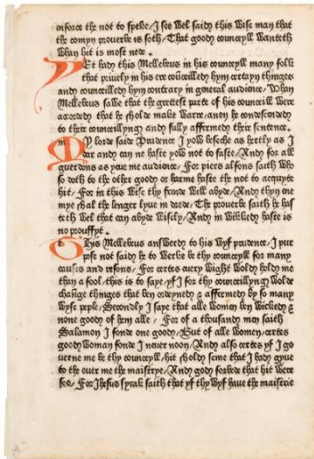 enforce the not to speke / I see Wel saidy this Wise may that
the comyn prouerbe is soth / That gooy counceyll Wanteth
Whay hit is most nede .
Yet hady this Mellebeus in his counceyll many folk
that priuely in his ere counceilledy hym certayy thynges
andy counceilledy hym contrary in general audience / Whay
Mellebeus saWe that the grettest parte of his counceill Were
accordedy that he sholde make Warre / anoy he condescendedy
to their counceyllyngy andy fully affermedy their sentence .
My lorde saidy Prudence I yow beseche as hertly as I
dar andy cay ne haste yoW not to faste / Andy for all
guerdons as yeue me audience / For piers alfons saith Who
so doth to the other gooy or harme haste the not to acquyte
hit / For in this Wise thy frende Wyll abyde / Andy thyy ene
mye shal the lenger lyue in drede / The prouerbe saith he has
teth Wel that cay abyde Wisely / Andy in Wikkedy haste is
no prouffyt .
This Mellebeus ansWerdy to his Wyf prudence / I pur
pose not saidy he to Werke be thy counceyll for many
causes andy resons / For certes euery Wight Woldy holdy me
thay a fool / this is to saye / yf I for thy counceillyngy Wolde
change thinges that bey ordeynedy & affermedy by so many
Wyse peple / Secondly I saye that alle Womey bey Wickedy &
none gooy of hem alle / For of a thousandy mey saith
Salamon I fonde one gooy / But of alle Womey / certes
gooy Womay fonde I neuer nooy / Andy also certes yf I go
uerne me by thy counceyll / hit sholdy seme that I hady gyue
to the ouer me the maistrye / Andy gody forbede that hit Were
soo / For Ihesus syrak saith that yf thy Wyf haue the maistrie